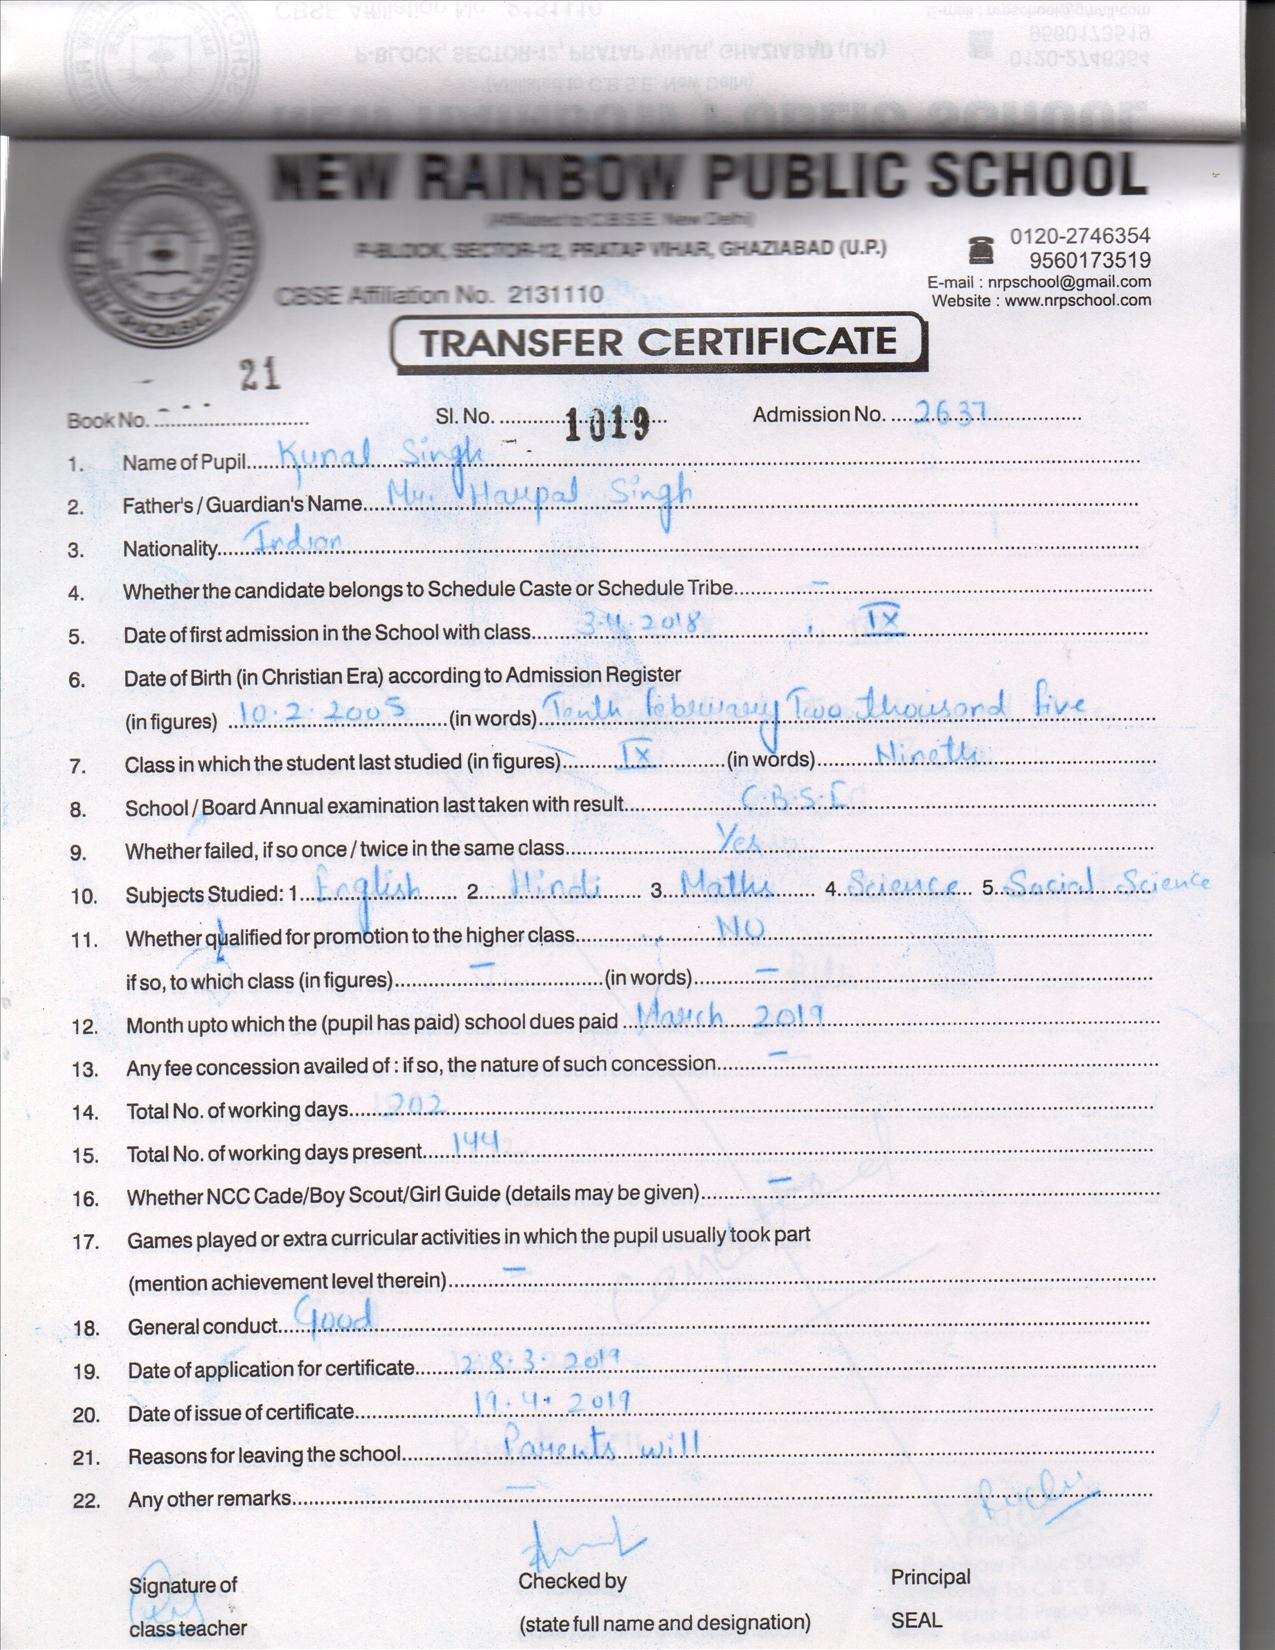 NEW RAINBOW PUBLIC SCHOOL
(Affiliated to C.B.S.E. New Delhi)
P-BLOCK, SECTOR-12, PRATAP VIHAR, GHAZIABAD (U.P.)
0120-2746354
9560173519
E-mail : nrpschool@gmail.com
CBSE Affiliation No. 2131110
Website : www.nrpschool.com
TRANSFER CERTIFICATE
Book No. 21 Sl. No. 1019 Admission No. 2637
1. Name of Pupil Kunal Singh
2. Father's / Guardian's Name Mr. Harpal Singh
3. Nationality Indian
4. Whether the candidate belongs to Schedule Caste or Schedule Tribe –
5. Date of first admission in the School with class 3.4.2018, IX
6. Date of Birth (in Christian Era) according to Admission Register
(in figures) 10.2.2005 (in words) Tenth february Two thousand five
7. Class in which the student last studied (in figures) IX (in words) Nineth
8. School / Board Annual examination last taken with result C.B.S.E
9. Whether failed, if so once / twice in the same class Yes
10. Subjects Studied: 1. English 2. Hindi 3. Maths 4. Science 5. Social Science
11. Whether qualified for promotion to the higher class NO
if so, to which class (in figures) – (in words) –
12. Month upto which the (pupil has paid) school dues paid March 2019
13. Any fee concession availed of : if so, the nature of such concession –
14. Total No. of working days 202
15. Total No. of working days present 144
16. Whether NCC Cade/Boy Scout/Girl Guide (details may be given) –
17. Games played or extra curricular activities in which the pupil usually took part
(mention achievement level therein) –
18. General conduct Good
19. Date of application for certificate 28.3.2019
20. Date of issue of certificate 19.4.2019
21. Reasons for leaving the school Parents will
22. Any other remarks –
Signature of Checked by Principal
class teacher (state full name and designation) SEAL